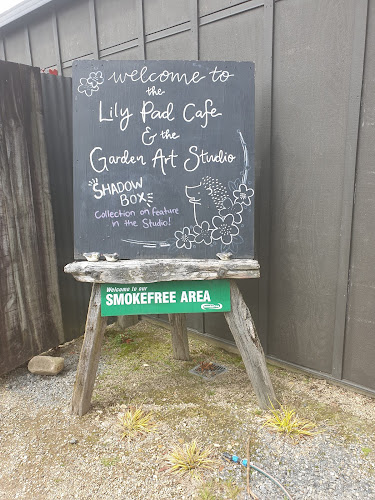 welcome to
the
Lily Pad Cafe
& the
Garden Art Studio
SHADOW
BOX
Collection on feature
in the Studio!
Welcome to our
SMOKEFREE AREA